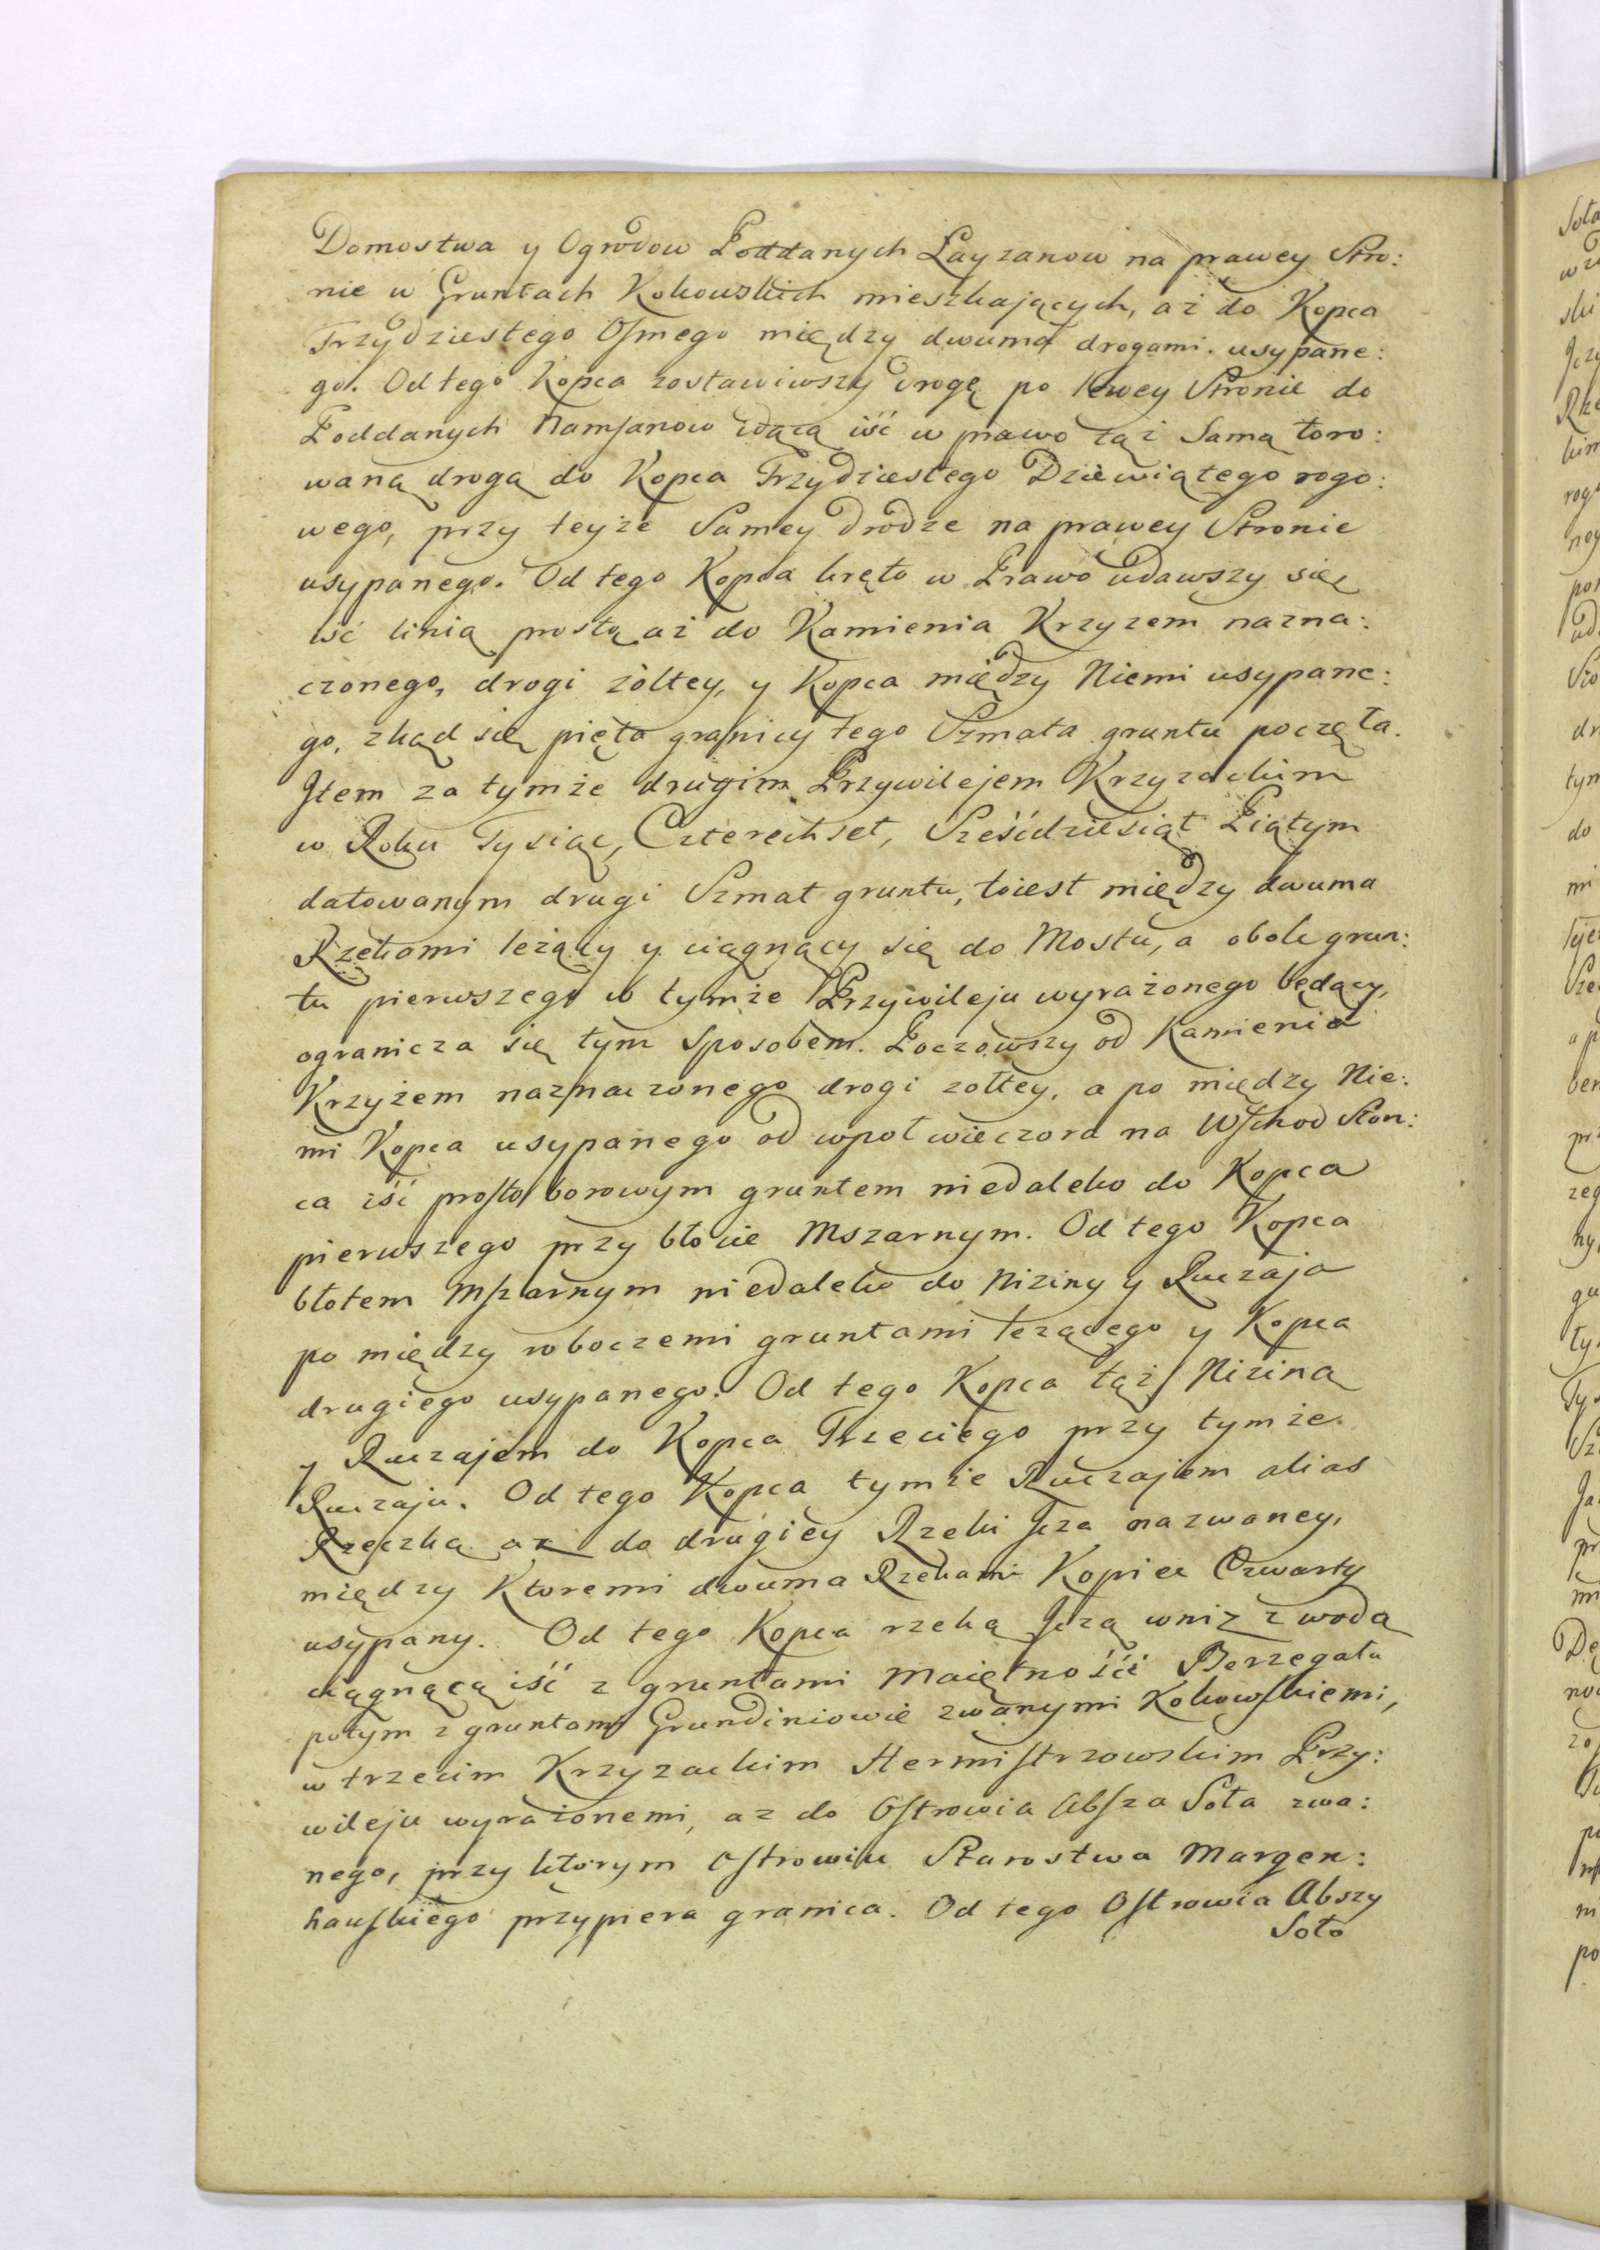 Domostwa y Ogrodow Poddanych Layzanow na prawey Stro:
nie w Gruntach Kokowskich mieszkających, aż do Kopca
Trzydziestego Osmego między dwuma drogami usypane:
go. Od tego Kopca zostawiwszy drogę po lewey Stronie do
Poddanych Namsanow idącą iść w prawo tąż Samą toro:
waną drogą do Kopca Trzydziestego Dziewiątego rogo:
wego, przy teyże Samey drodze na prawey Stronie
usypanego. Od tego Kopca kręto w Prawo udawszy się
iść linią prostą aż do Kamienia Krzyzem nazna:
czonego, drogi żòltey, y Kopca między Niemi usypane:
go, zkąd się pięta granicy tego Szmata gruntu poczęła.
Jtem za tymże drugim Przywilejem Krzyzackim
w Roku Tysiąc, Czterechset, Sześćdziesiąt Piątym
datowanym drugi Szmat gruntu, toiest między dwuma
Rzekami leżący y ciągnący się do Mostu, a obok grun:
tu pierwszego w tymże Przywileju wyrażonego będący,
ogranicza się tym sposobem. Począwszy od Kamienia
Krzyżem naznaczonego drogi zołtey, a po między Nie:
mi Kopca usypanego od wpoł wieczora na Wschod Słon:
ca iść prosto borowym gruntem niedaleko do Kopca
pierwszego przy błocie Mszarnym. Od tego Kopca
błotem Mszarnym niedaleko do Niziny y Ruczaja
po między roboczemi gruntami leżącego y Kopca
drugiego usypanego. Od tego Kopca tąż Niziną
y Ruczajem do Kopca Trzeciego przy tymże
Ruczaju. Od tego Kopca tymże Ruczajem alias
Rzeczką az do drugiey Rzeki Jcza nazwaney,
między Ktoremi dwuma Rzekami Kopiec Czwarty
usypany. Od tego Kopca rzeką Jczą wniz z wodą
ciągnącą iść z gruntami Maiętności Berzegału
potym z gruntami Grundiniowie zwanymi Kokowskiemi,
w trzecim Krzyzackim Hermistrzowskim Przy:
wileju wyrażonemi, az do Ostrowia Absza Soła zwa:
nego, przy którym Ostrowiu Starostwa Margen:
hauskiego przypiera granica. Od tego Ostrowia Abszy
Soło